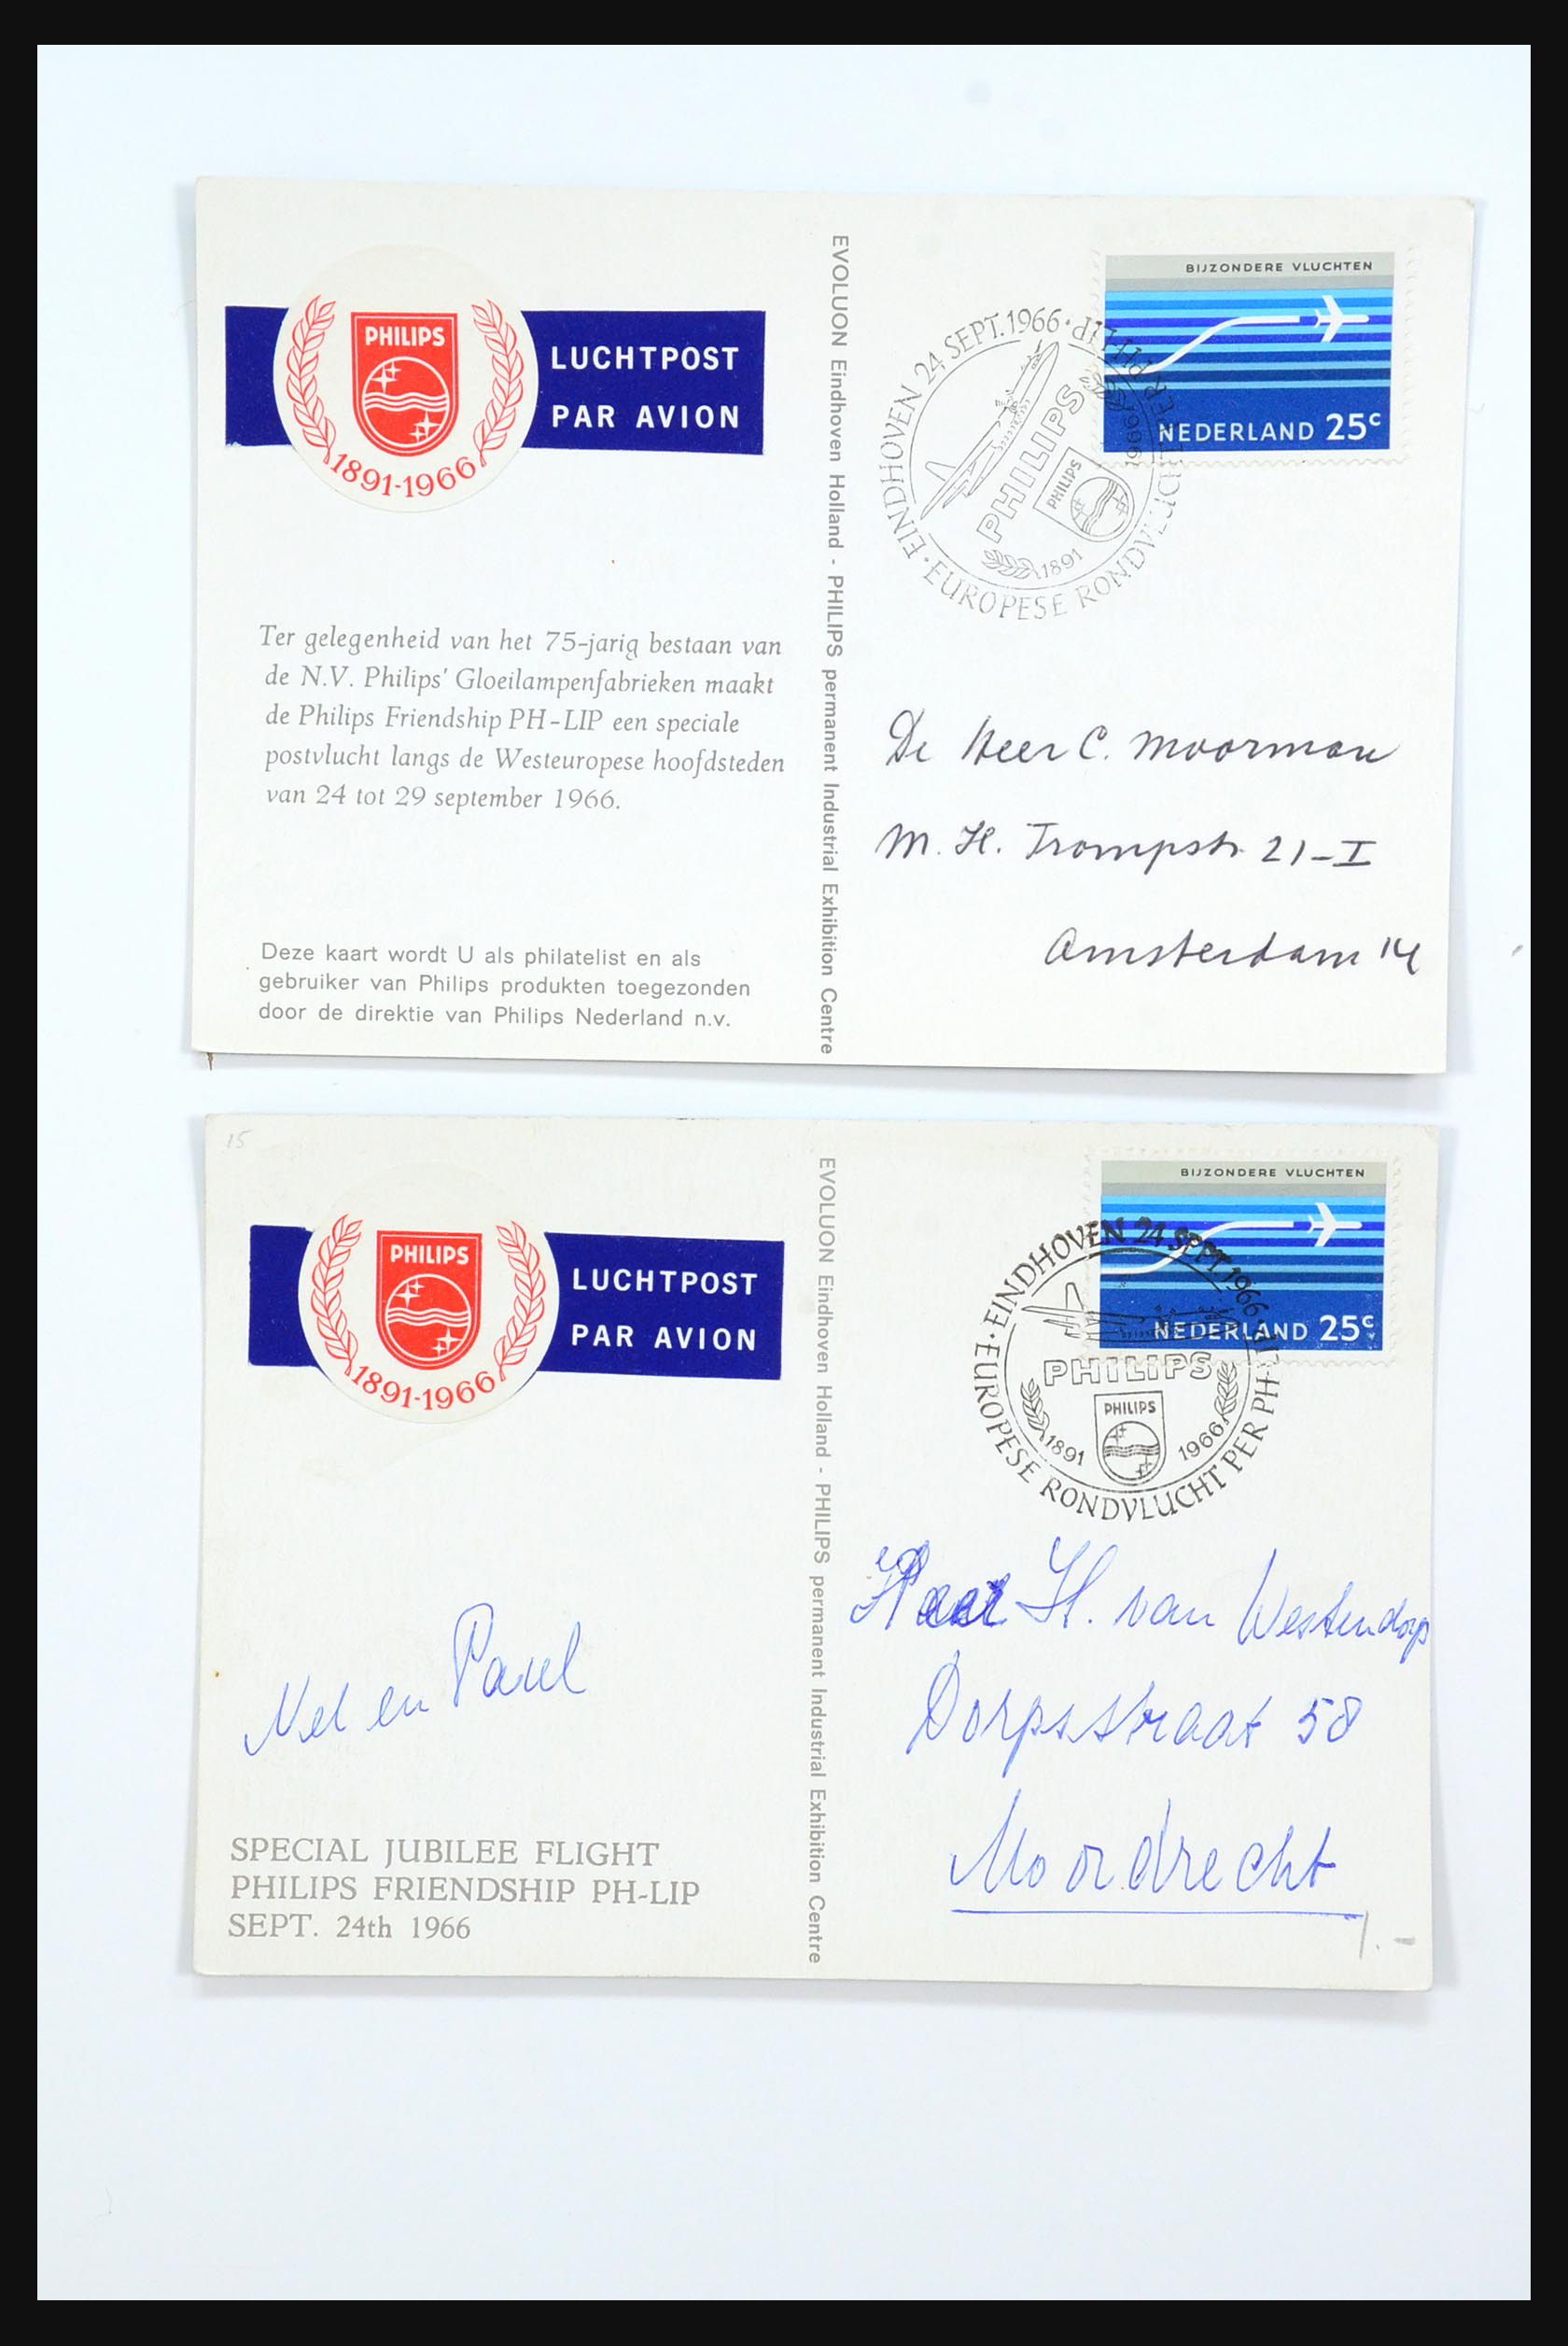 PHILIPS
1891-1966
LUCHTPOST
PAR AVION
Ter gelegenheid van het 75-jarig bestaan van
de N.V. Philips' Gloeilampenfabrieken maakt
de Philips Friendship PH-LIP een speciale
postvlucht langs de Westeuropese hoofdsteden
van 24 tot 29 september 1966.
Deze kaart wordt U als philatelist en als
gebruiker van Philips produkten toegezonden
door de direktie van Philips Nederland n.v.
EVOLUON Eindhoven Holland - PHILIPS permanent Industrial Exhibition Centre
BIJZONDERE VLUCHTEN
NEDERLAND 25c
EINDHOVEN 24 SEPT. 1966 · EUROPESE RONDVLUCHT PER PH-LIP
PHILIPS
PHILIPS
1891 1966
De Heer C. Moorman
M. H. Trompstr. 21-I
Amsterdam 14
15
PHILIPS
1891-1966
LUCHTPOST
PAR AVION
Nel en Paul
SPECIAL JUBILEE FLIGHT
PHILIPS FRIENDSHIP PH-LIP
SEPT. 24th 1966
EVOLUON Eindhoven Holland - PHILIPS permanent Industrial Exhibition Centre
BIJZONDERE VLUCHTEN
NEDERLAND 25c
EINDHOVEN 24 SEPT. 1966 · EUROPESE RONDVLUCHT PER PH-LIP
PHILIPS
PHILIPS
1891 1966
Heer H. van Westendorp
Dorpsstraat 58
Moordrecht
1.-